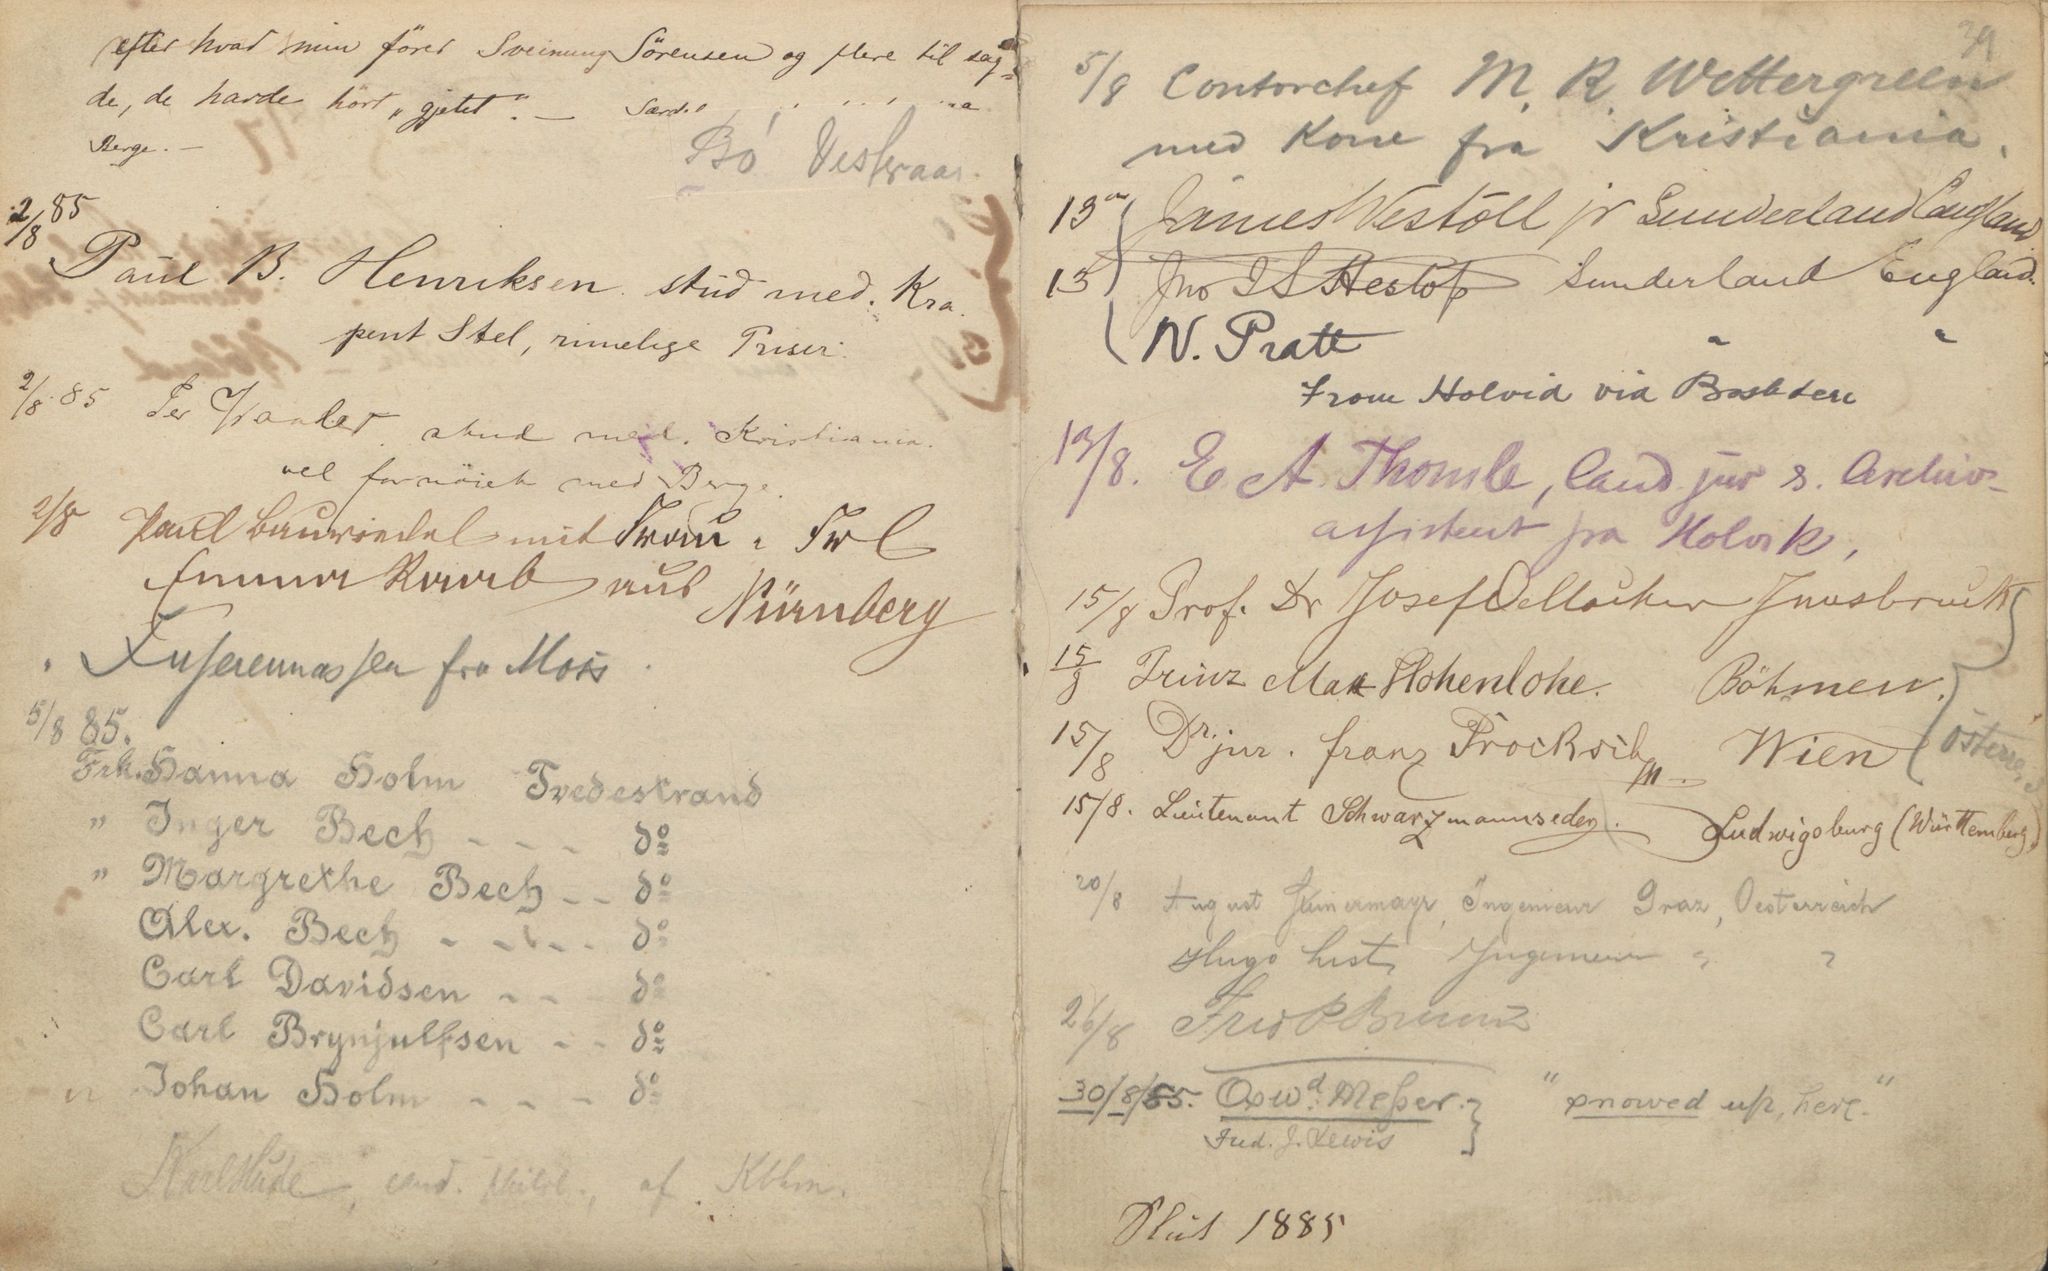 efter hvad min förer Sveinung Sörensen og flere til sag-
de, de havde hört "gjetet". —
Berge. —
Bö Vestraar.
2/8 85
Paul B. Henriksen. stud med. Kra.
pent Stel, rimelige Priser.
2/8 85 Per stud med. Kristiania.
vel fornöiet med Berge.
2/8 mit Frau & Frl
aus Nürnberg
" fra Moss.
5/8 85.
Frk. Hanna Holm Tvedestrand
" Inger Bech - - - - do
" Margrethe Bech - - do
Alex. Bech - - - - do
Carl Davidsen - - do
Carl Brynjulfsen - - do
" Johan Holm - - - do
Karl Hude, cand. philol., af Kbhvn.
39
5/8 Contorchef M. R. Wettergreen
med Kone fra Kristiania.
13 James Westoll jr Sunderland England
13 Jno Heslop Sunderland England.
N. Pratt " "
From Holvid via
13/8. E A Thomle, Cand. jur & Archiv-
assistent fra Holvik,
15/8 Prof. Dr Josef Oellacher Innsbruck
15/8 Prinz Max Hohenlohe. Böhmen.
15/8 Dr. jur. Franz Wien
Österr.
15/8. Lieutenant Schwarzmannseder. Ludwigsburg (Württemberg)
20/8 August Ingenieur Graz, Oesterreich
Hugo List, Ingenieur " "
26/8
30/8/85. Oswd. Messer. "snowed up, here."
Fred. J. Lewis
Slut 1885